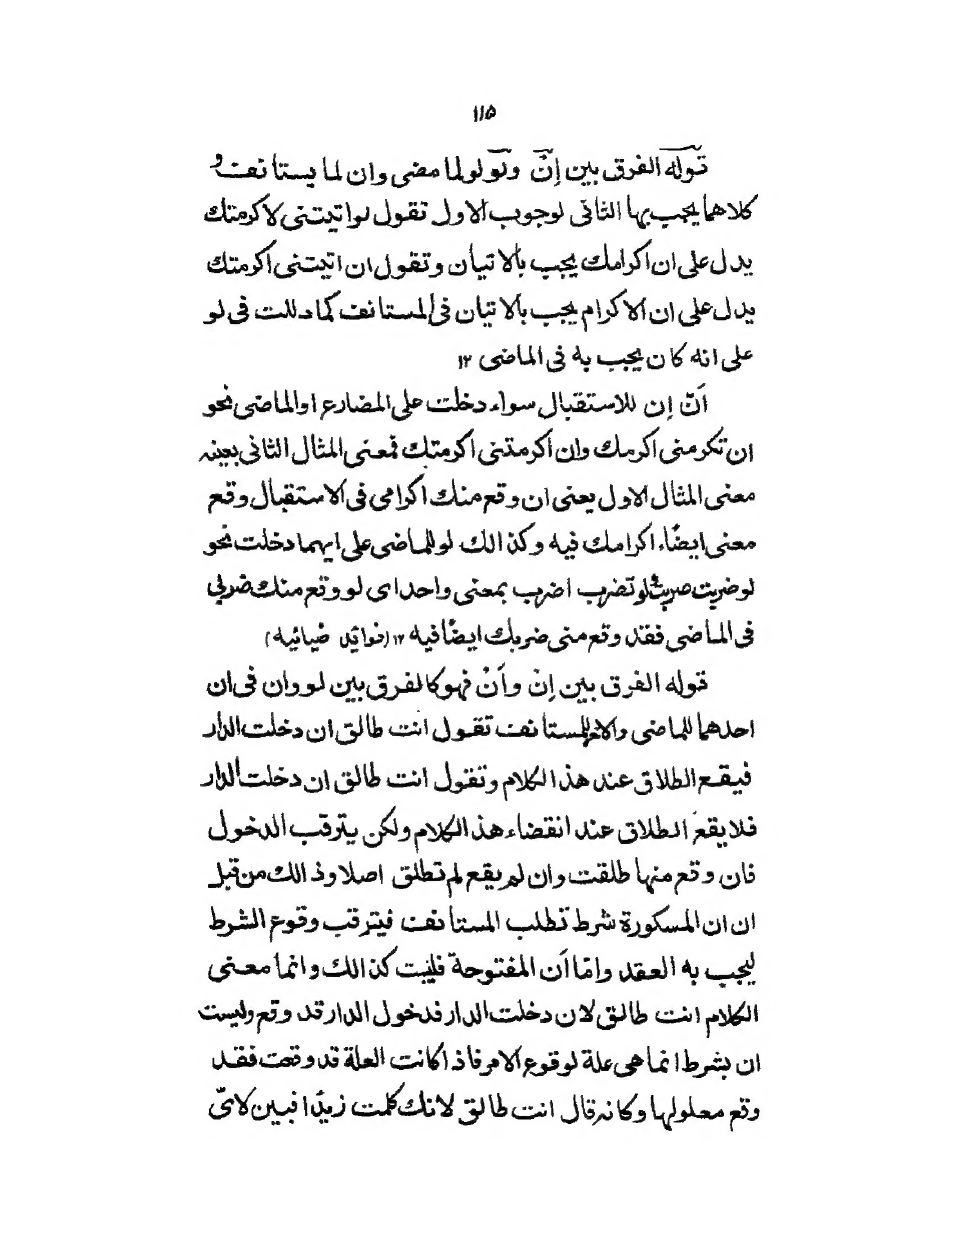 ۱۱۵
قوله الفرق بين إنّ ولَو لو لما مضى وان لما يستانف و
كلاهما يجب بها الثانى لوجوب الاول تقول لو اتيتنى لاكرمتك
يدل على ان اكرامك يجب بالاتيان وتقول ان اتيتنى اكرمتك
يدل على ان الاكرام يجب بالاتيان فى المستانف كما دللت فى لو
على انه كان يجب به فى الماضى ۱۲
أنّ إن للاستقبال سواء دخلت على المضارع او الماضى نحو
ان تكرمنى اكرمك وان اكرمتنى اكرمتك فمعنى المثال الثانى بعينه
معنى المثال الاول يعنى ان وقع منك اكرامى فى الاستقبال وقع
معنى ايضًا اكرامك فيه وكذالك لو للماضى على ايهما دخلت نحو
لو ضربت ضربت ولو تضرب اضرب بمعنى واحد اى لو وقع منك ضربى
فى الماضى فقد وقع منى ضربك ايضًا فيه ۱۲ (فوائد ضيائيه)
قوله الفرق بين إنْ وأنْ فهو كالفرق بين لو وان فى ان
احدهما للماضى والاخر للمستانف تقول انت طالق ان دخلت الدار
فيقع الطلاق عند هذا الكلام وتقول انت طالق ان دخلت الدار
فلا يقع الطلاق عند انقضاء هذا الكلام ولكن يترقب الدخول
فان وقع منها طلقت وان لم يقع لم تطلق اصلا وذالك من قبل
ان ان المسكورة شرط تطلب المستانف فيترقب وقوع الشرط
ليجب به العقد وامّا أن المفتوحة فليت كذالك وانما معنى
الكلام انت طالق لان دخلت الدار فدخول الدار قد وقع وليست
ان بشرط انما هى علة لوقوع الامر فاذا كانت العلة قد وقعت فقد
وقع معلولها وكانه قال انت طالق لانك كلمت زيدًا فبين لاىّ